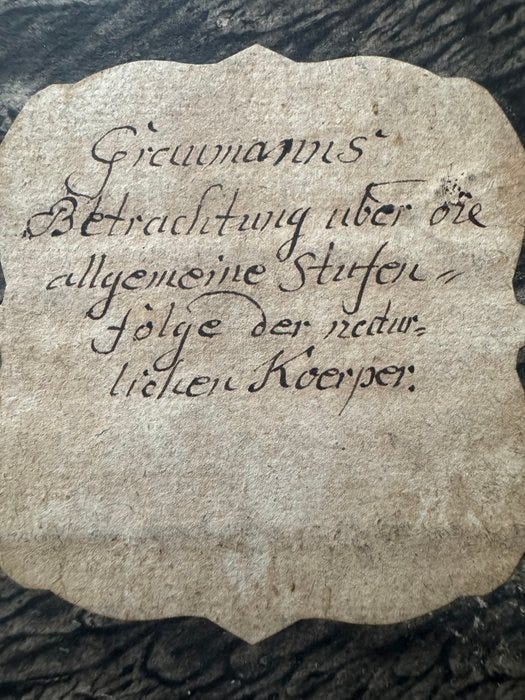 Graumanns
Betrachtung uber die
allgemeine Stufen=
folge der natur=
lichen Koerper.